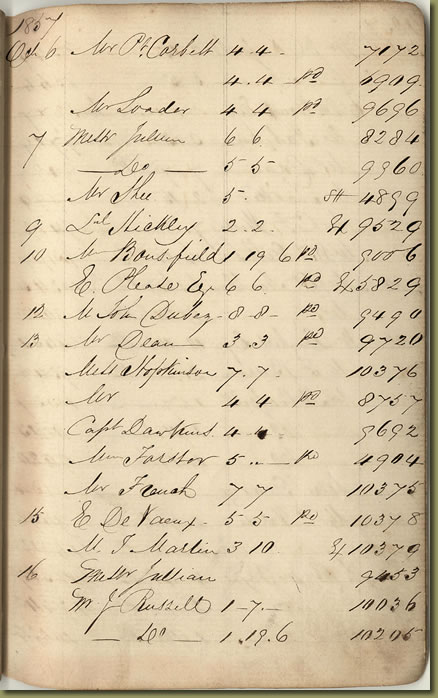 1857
Oct 6. Mr Pr Corbett 4 4 - 7172
4.4 - pd 4909
Mr Loader 4 4 pd 9696
7 Messr Jullien 6 6 8284
Do 5 5 9960
Mr Shee 5 - 4899
9 Hickley 2.2. Ex 9529
10 M Bousfield 1 19 6 pd 9006
E. Please Eq 6 6 pd Ex 5829
12 M John - 8-8- pd 9490
13 Mr Dean 3.3 pd 9720
Miss Hopkinson 7.7. 10376
Mr 4 4 pd 8757
Capt Dawkins 4 4 9692
Forster 5 ..- pd 4904
Mr French 7 7 10375
15 E De Vaeux - 5 5 pd 10378
M. J Martin 3 10 Ex 10379
16 Messr Jullian 9453
Mr J Russell 1-7.- 10036
- Do - 1.19.6 10205